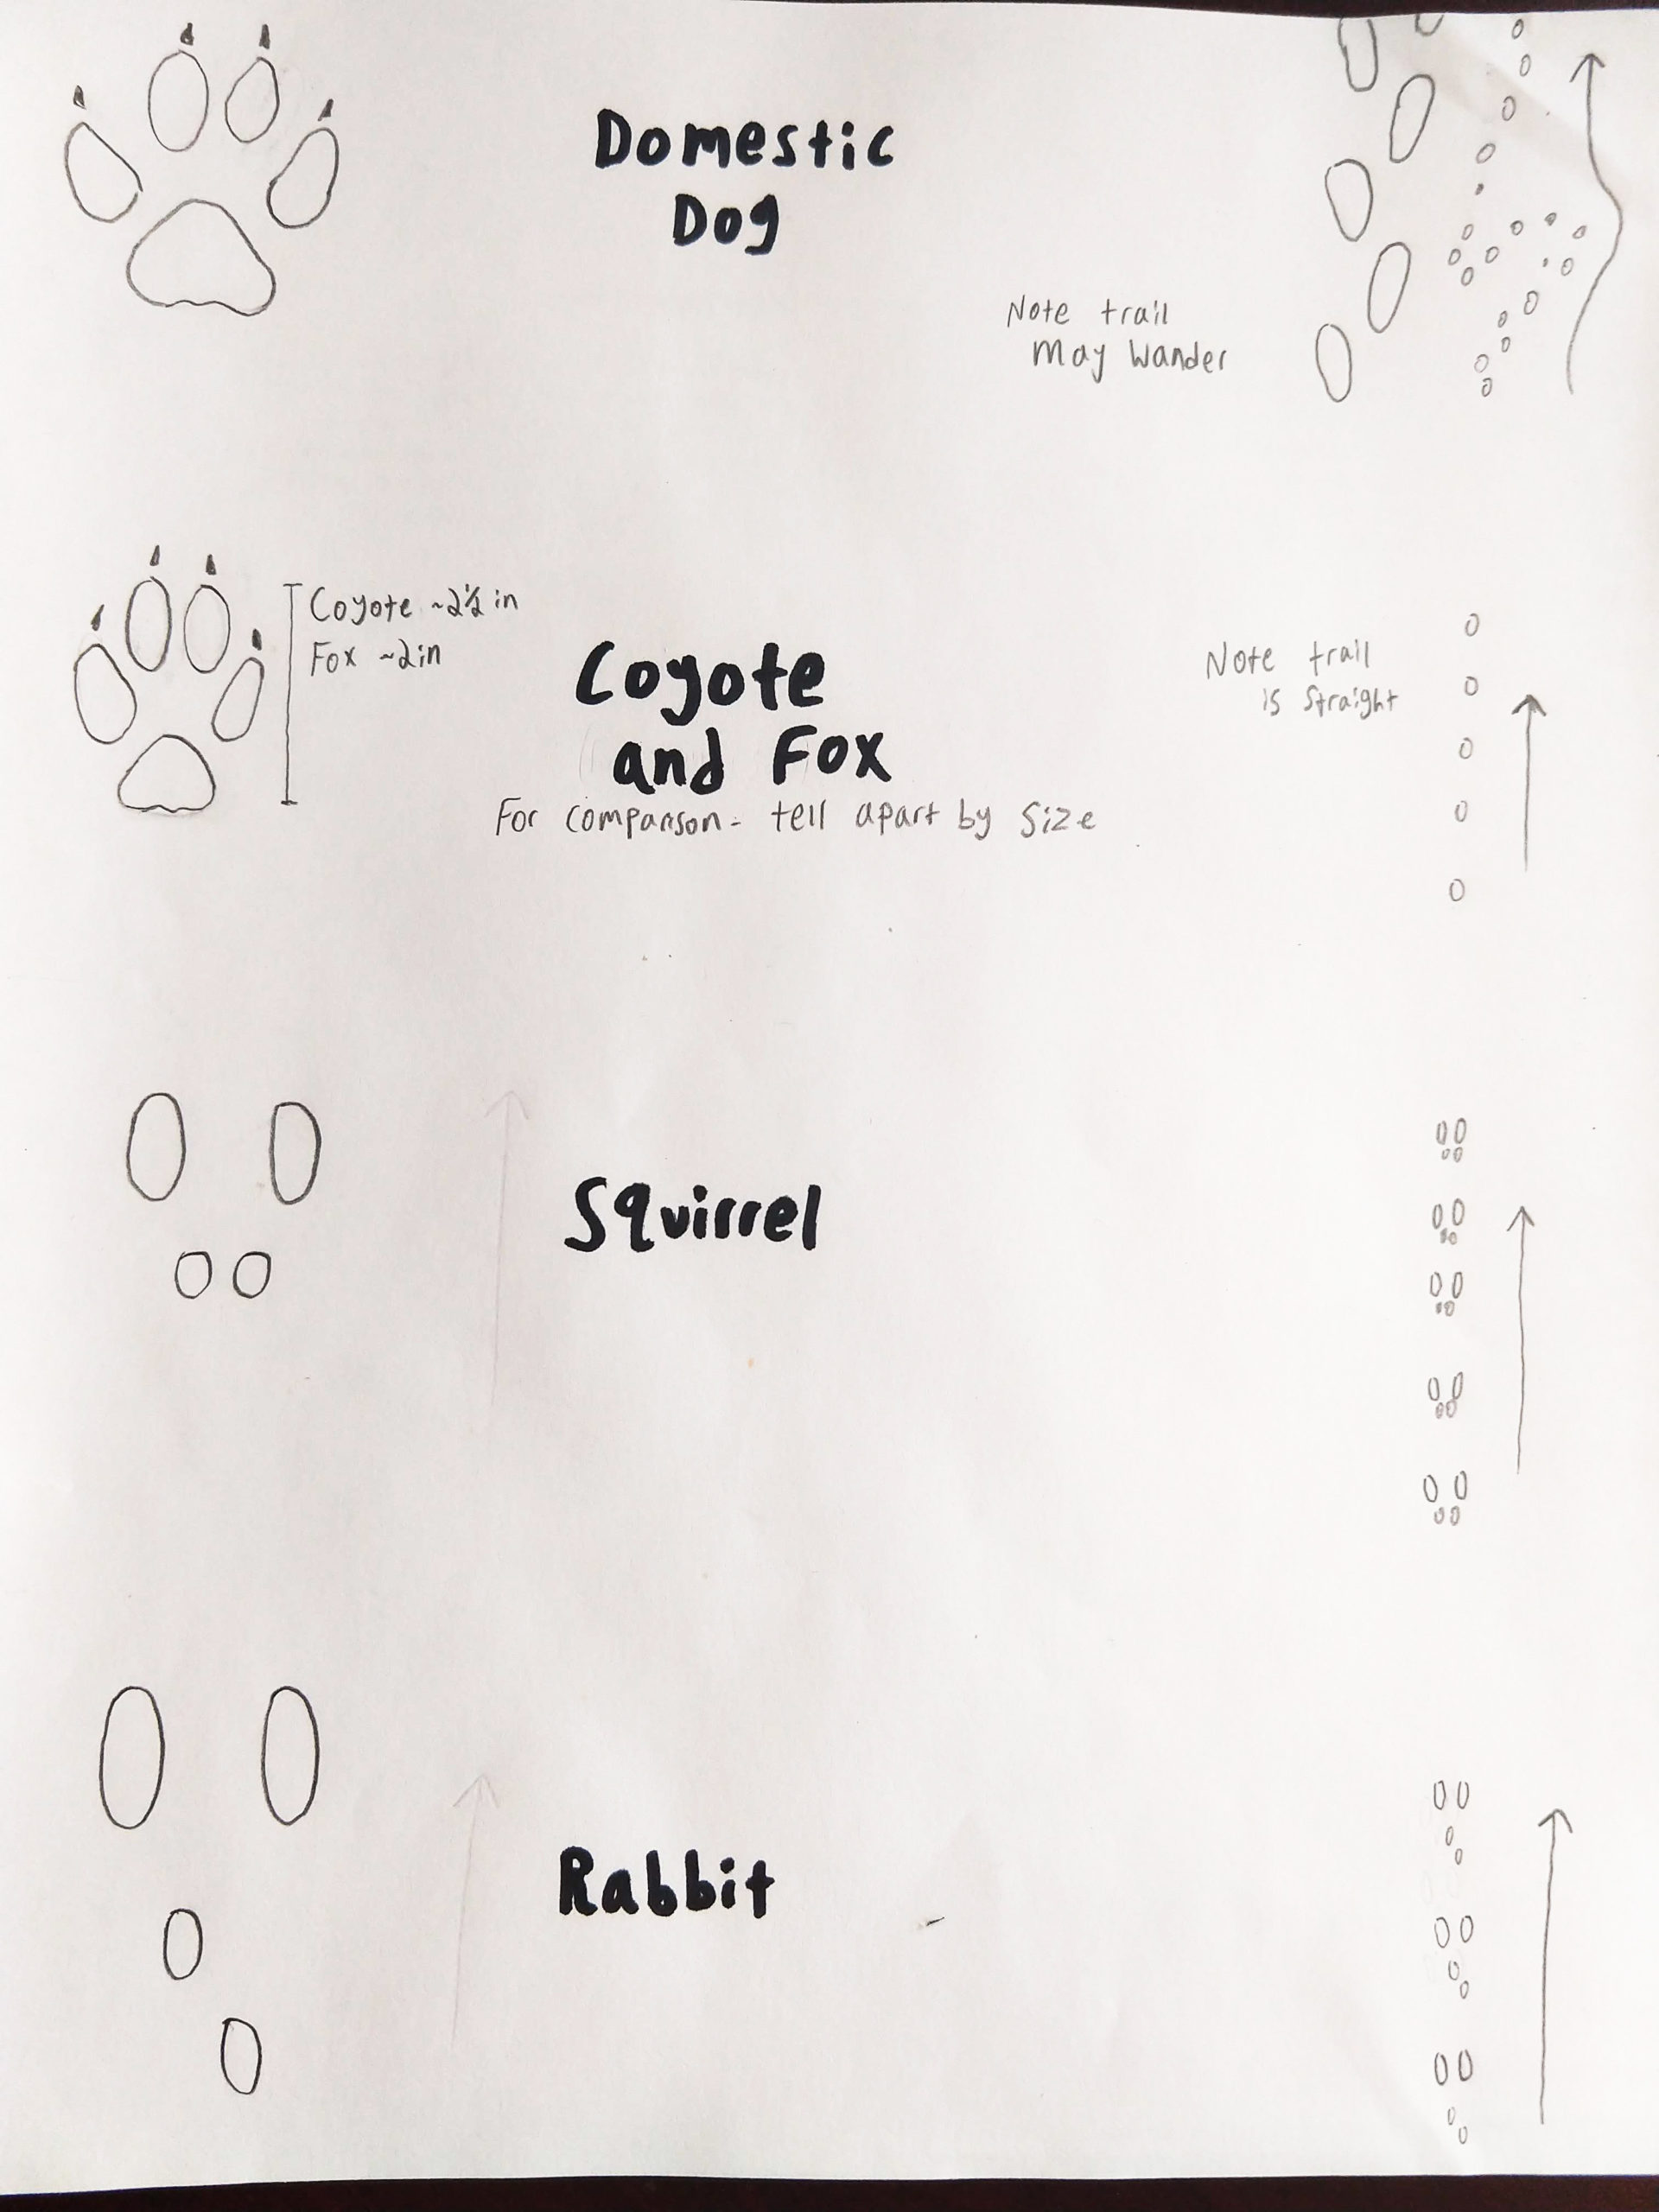 Domestic
Dog
Note trail
may wander
Coyote ~2½ in
Fox ~2in
Coyote
and Fox
For comparison - tell apart by size
Note trail
is straight
Squirrel
Rabbit